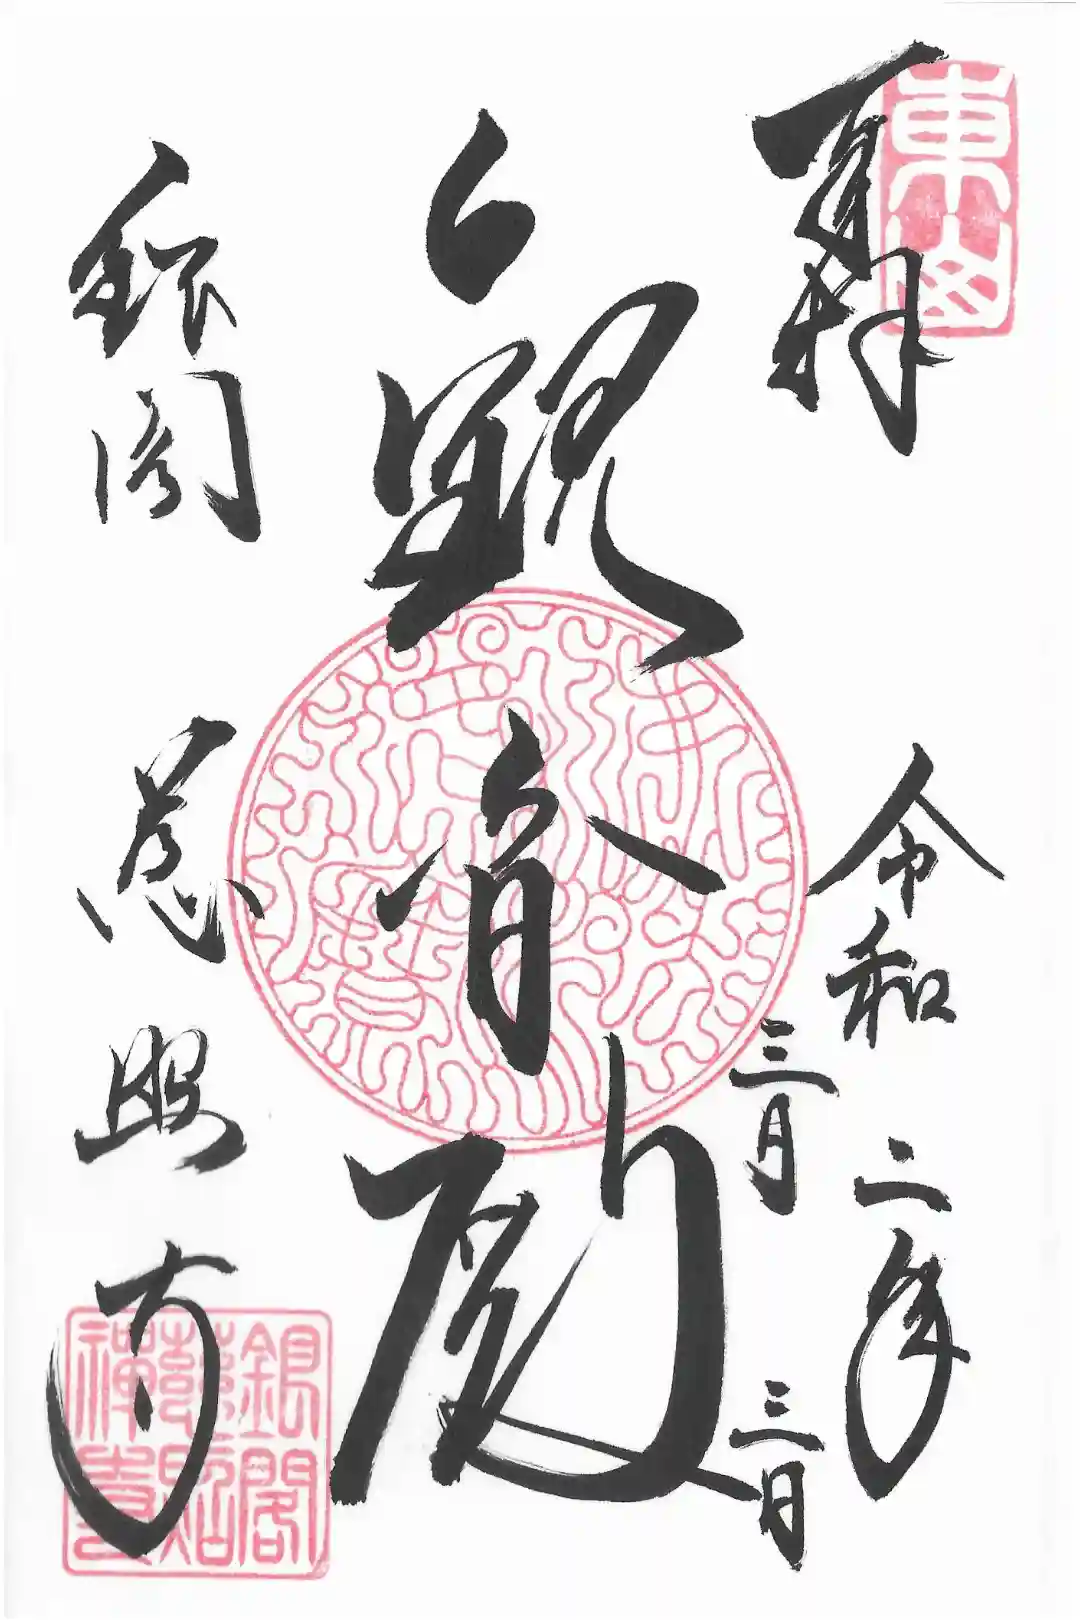 奉拝
東山
令和二年
三月三日
観音殿
銀閣
慈照寺
銀閣
慈照
禅寺